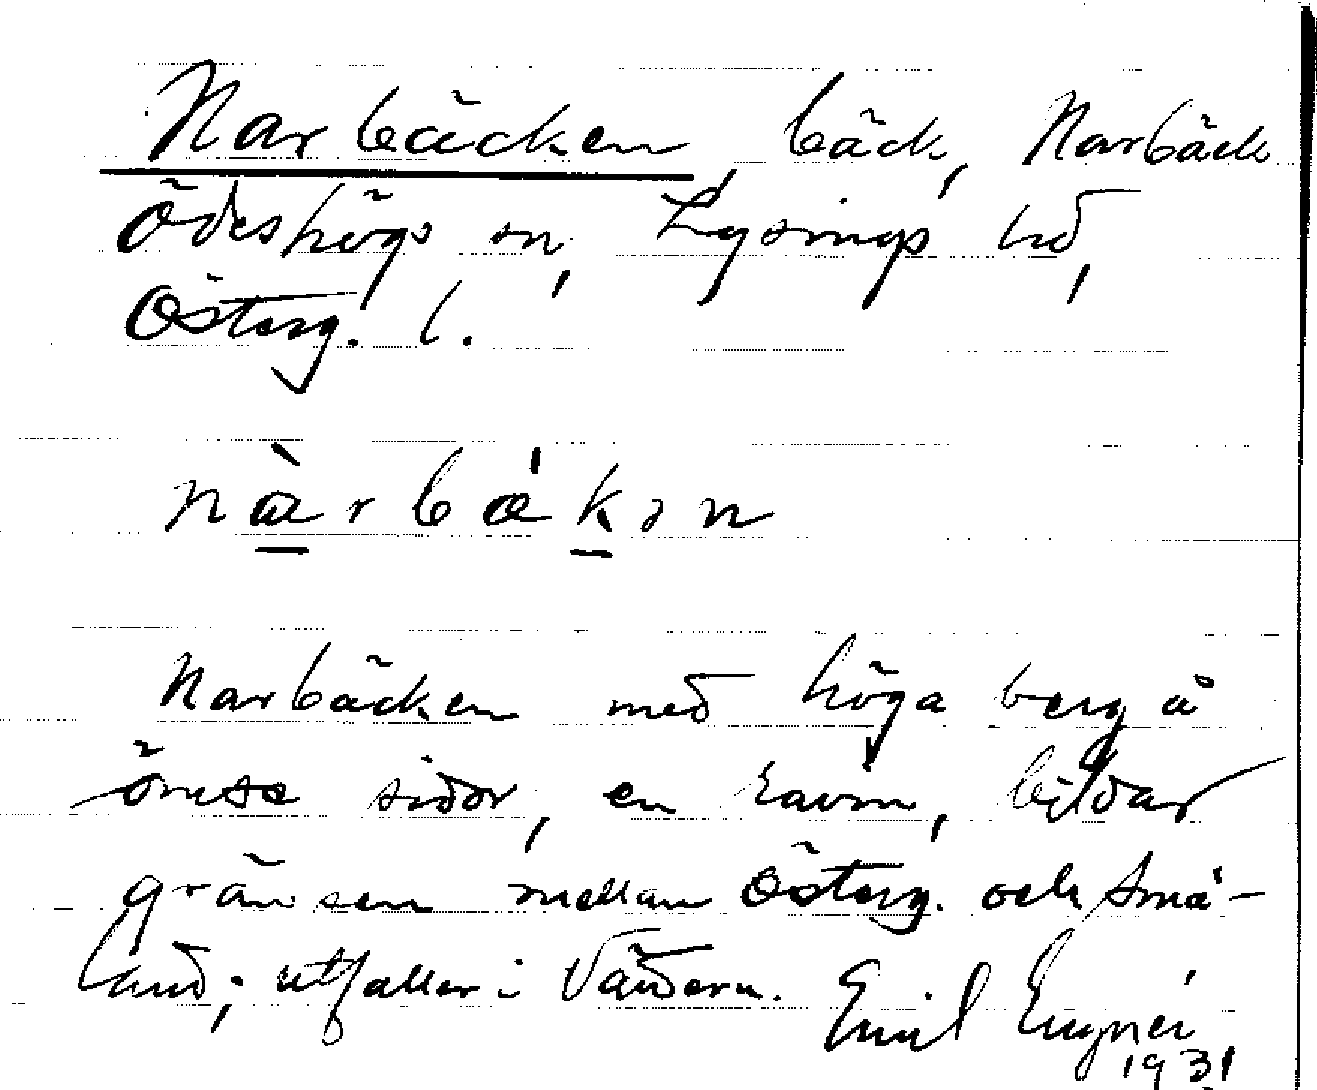 Narbäcken bäck, Narbäck
Ödeshögs sn, Lysings hd,
Österg. l.
nàrbäkən
Narbäcken med höga berg å
ömse sidor, en ravin, bildar
gränsen mellan Österg. och Små-
land; utfaller i Vättern. Emil
1931